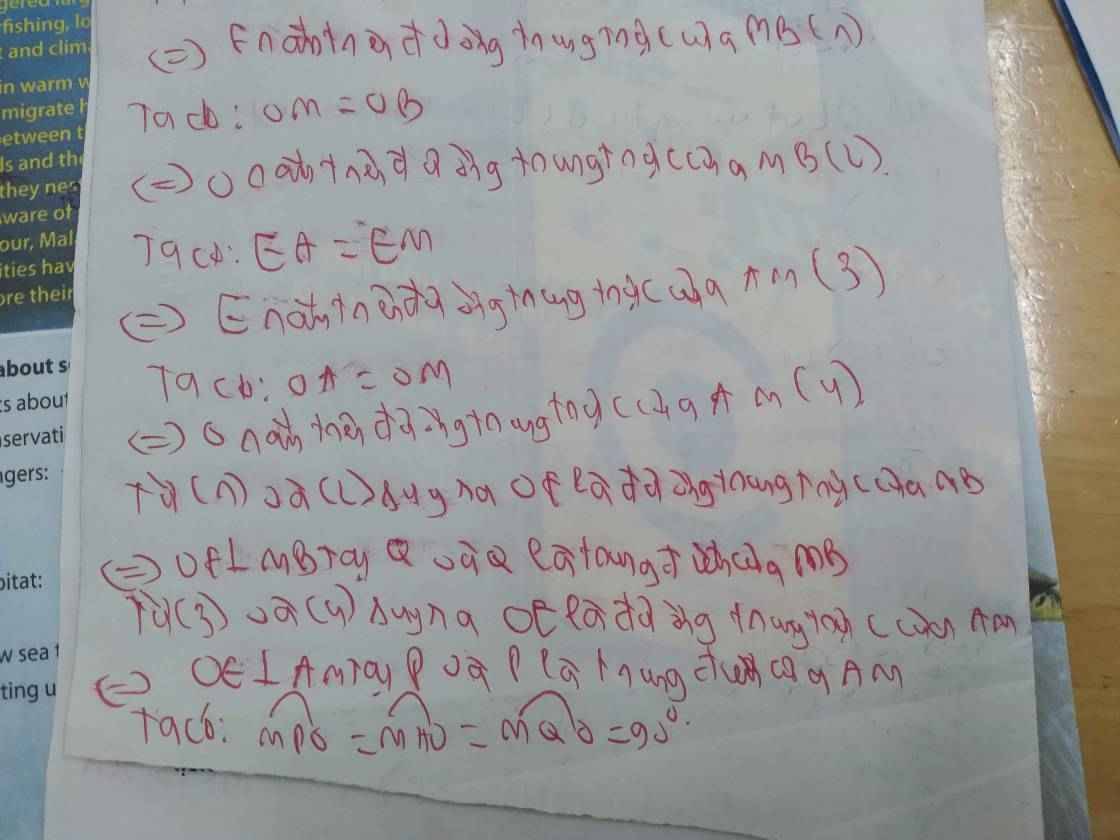 gered larg
fishing, lo
t and clima
in warm w
migrate h
between t
ds and the
they nes
ware of
our, Mal
ities hav
ore their
about s
ts about
nservati
ngers:
bitat:
w sea t
ting u
(=) E nằm trên đường trung trực của MB (1)
Ta có: OM = OB
(=) O nằm trên đường trung trực của MB (2).
Ta có: EA = EM
(=) E nằm trên đường trung trực của AM (3)
Ta có: OA = OM
(=) O nằm trên đường trung trực của AM (4)
Từ (1) và (2) suy ra OE là đường trung trực của MB
(=) OE ⊥ MB tại Q và Q là trung điểm của MB
Từ (3) và (4) suy ra OE là đường trung trực của AM
(=) OE ⊥ AM tại P và P là trung điểm của AM
Ta có: MPO = MHO = MQO = 90°.